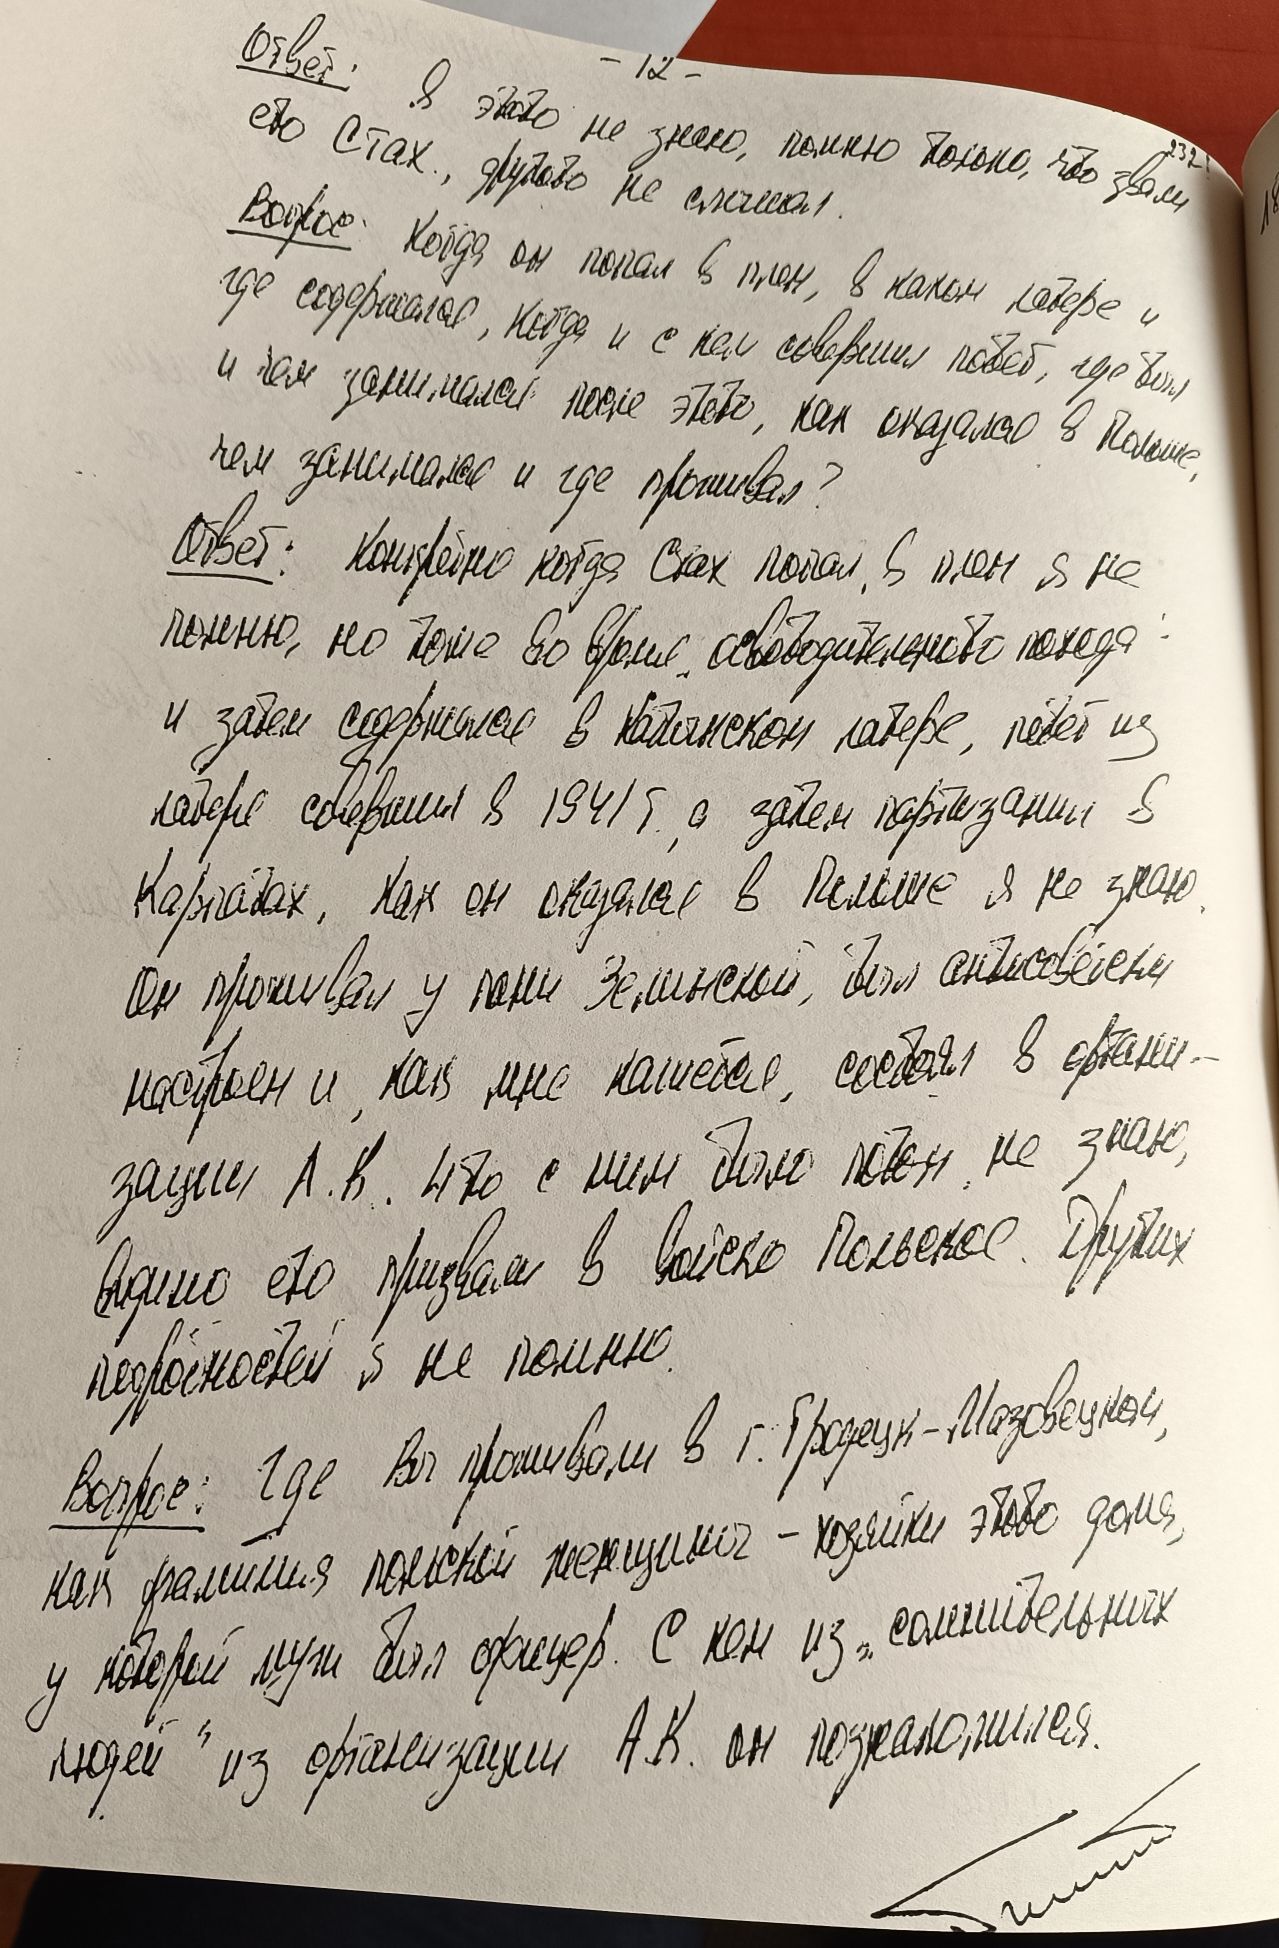 - 12 -
232
Ответ: Я этого не знаю, помню только, что звали
его Стах., другого не слышал.
Вопрос: Когда он попал в плен, в каком лагере и
где содержался, когда и с кем совершил побег, где был
и чем занимался после этого, как оказался в Польше,
чем занимался и где проживал?
Ответ: Конкретно когда Стах попал в плен я не
помню, но тоже во время освободительного похода
и затем содержался в Катынском лагере, побег из
лагеря совершил в 1941 г., а затем партизанил в
Карпатах, как он оказался в Польше я не знаю.
Он проживал у пани Зелинской, был антисоветски
настроен и, как мне кажется, состоял в органи-
зации А.К. Что с ним было потом, не знаю,
видимо его призвали в Войско Польское. Других
подробностей я не помню.
Вопрос: Где Вы проживали в г. Гродецк-Мазовецком,
как фамилия польской женщины - хозяйки этого дома,
у которой муж был офицер. С кем из „сомнительных
людей" из организации А.К. он познакомился.